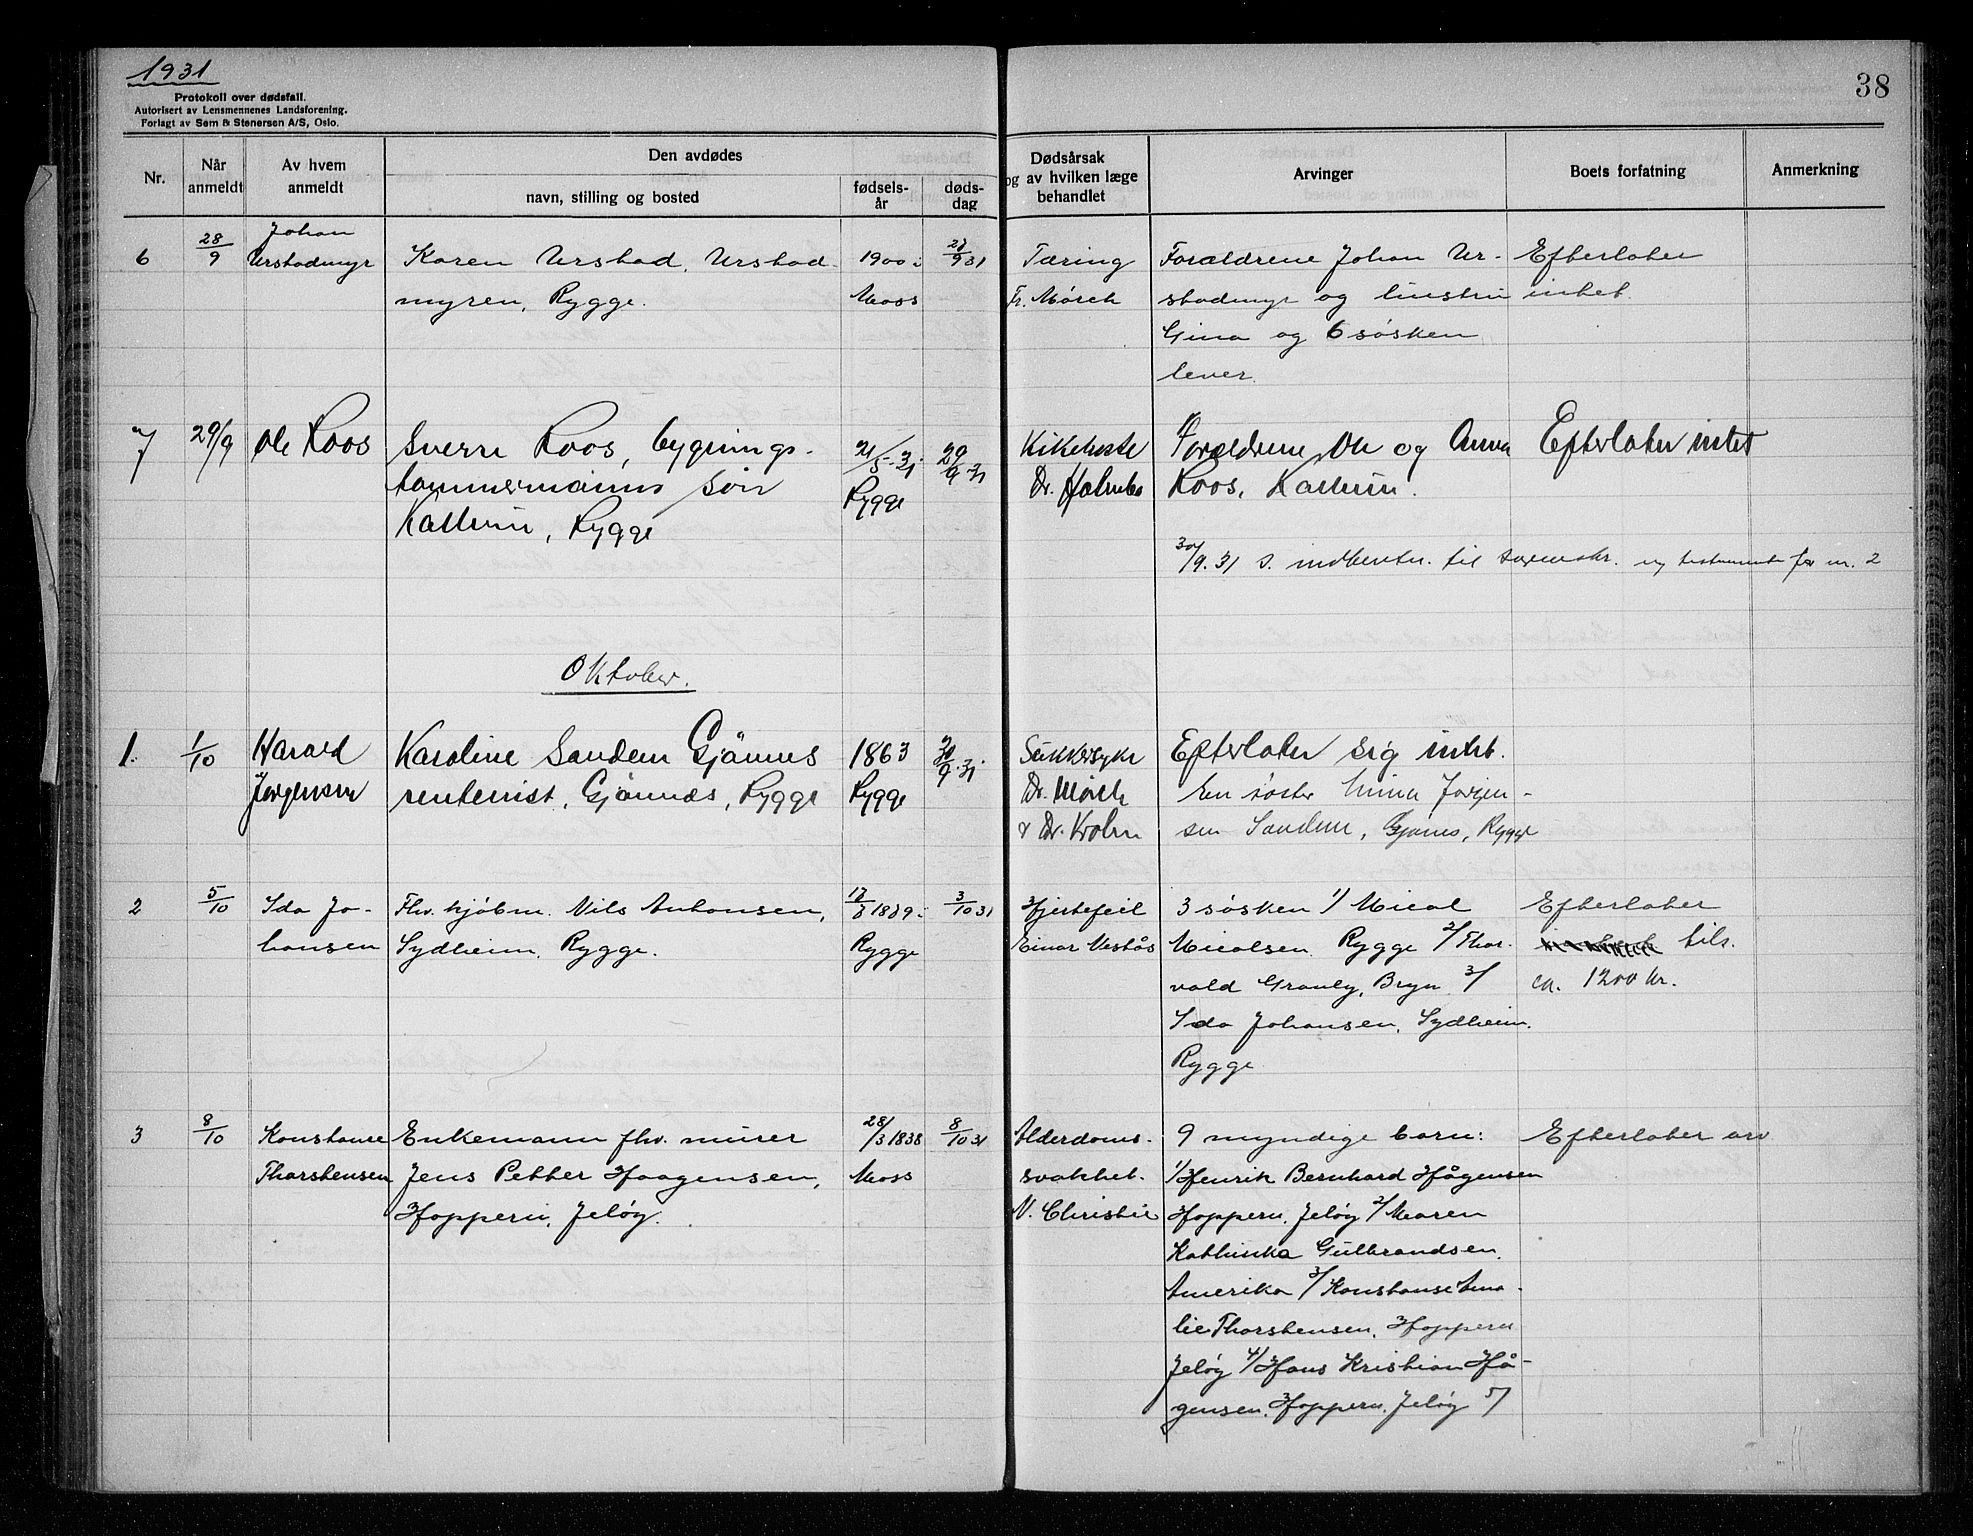 1931
Protokoll over dødsfall.
Autorisert av Lensmennenes Landsforening.
Forlagt av Sem & Stenersen A/S, Oslo.
38
Nr.
Når anmeldt
Av hvem anmeldt
Den avdødes
navn, stilling og bosted
fødsels-år
døds-dag
Dødsårsak og av hvilken læge behandlet
Arvinger
Boets forfatning
Anmerkning
6
28/9
Johan
Urstadmyr
Karen Urstad, Urstad-
myren, Rygge.
1900 i
Moss
27/9 31
Tæring
Fr. Mørch
Forældrene Johan Ur-
stadmyr og hustru
Gina og 6 søsken
lever.
Efterlater
intet.
7
29/9
Ole Roos
Sverre Roos, bygnings-
tømmermanns søn
Rygge
21/5-31
Rygge
29/9-31
Kikhoste
Dr. Holmbo
Forældrene Ole og Anna
Roos,
Efterlater intet
30/9.31 S. til for nr. 2
Oktober.
1.
1/10
Harald
Jørgensen
Karoline Sandem Gjønnes
rentenist, Gjønnes, Rygge
1863
Rygge
9.31
Sukkersyke
Dr. Mørch
& Dr. Krohn
Efterlater sig intet.
En søster Minna Jørgen-
sen Sandem, Gjønnes, Rygge
2
5/10
Ida Jo-
hansen
Fhv. kjøbm. Nils Antonsen,
Sydheim, Rygge.
17/8 1889 i
Rygge
3/10 31
Hjertefeil
Einar Vestås
3 søsken 1/ Nicol
Nicolsen Rygge 2/ Thor-
vald Granly, Bryn 3/
Ida Johansen, Sydheim,
Rygge
Efterlater
tils.
ca. 1200 kr.
3
8/10
Konstanse
Thorstensen
Enkemann fhv. murer
Jens Petter Haagensen,
Hoppern, Jeløy.
28/3 1838
Moss
8/10 31
Alderdoms-
svakhet.
N. Christie
9 myndige barn:
1/ Henrik Bernhard Hågensen
Hoppern, Jeløy 2/ Maren
Kathinka Gulbrandsen,
Amerika 3/ Konstanse Ama-
lie Thorstensen, Hoppern
Jeløy 4/ Hans Kristian Hå-
gensen, Hoppern, Jeløy 5/
Efterlater arv